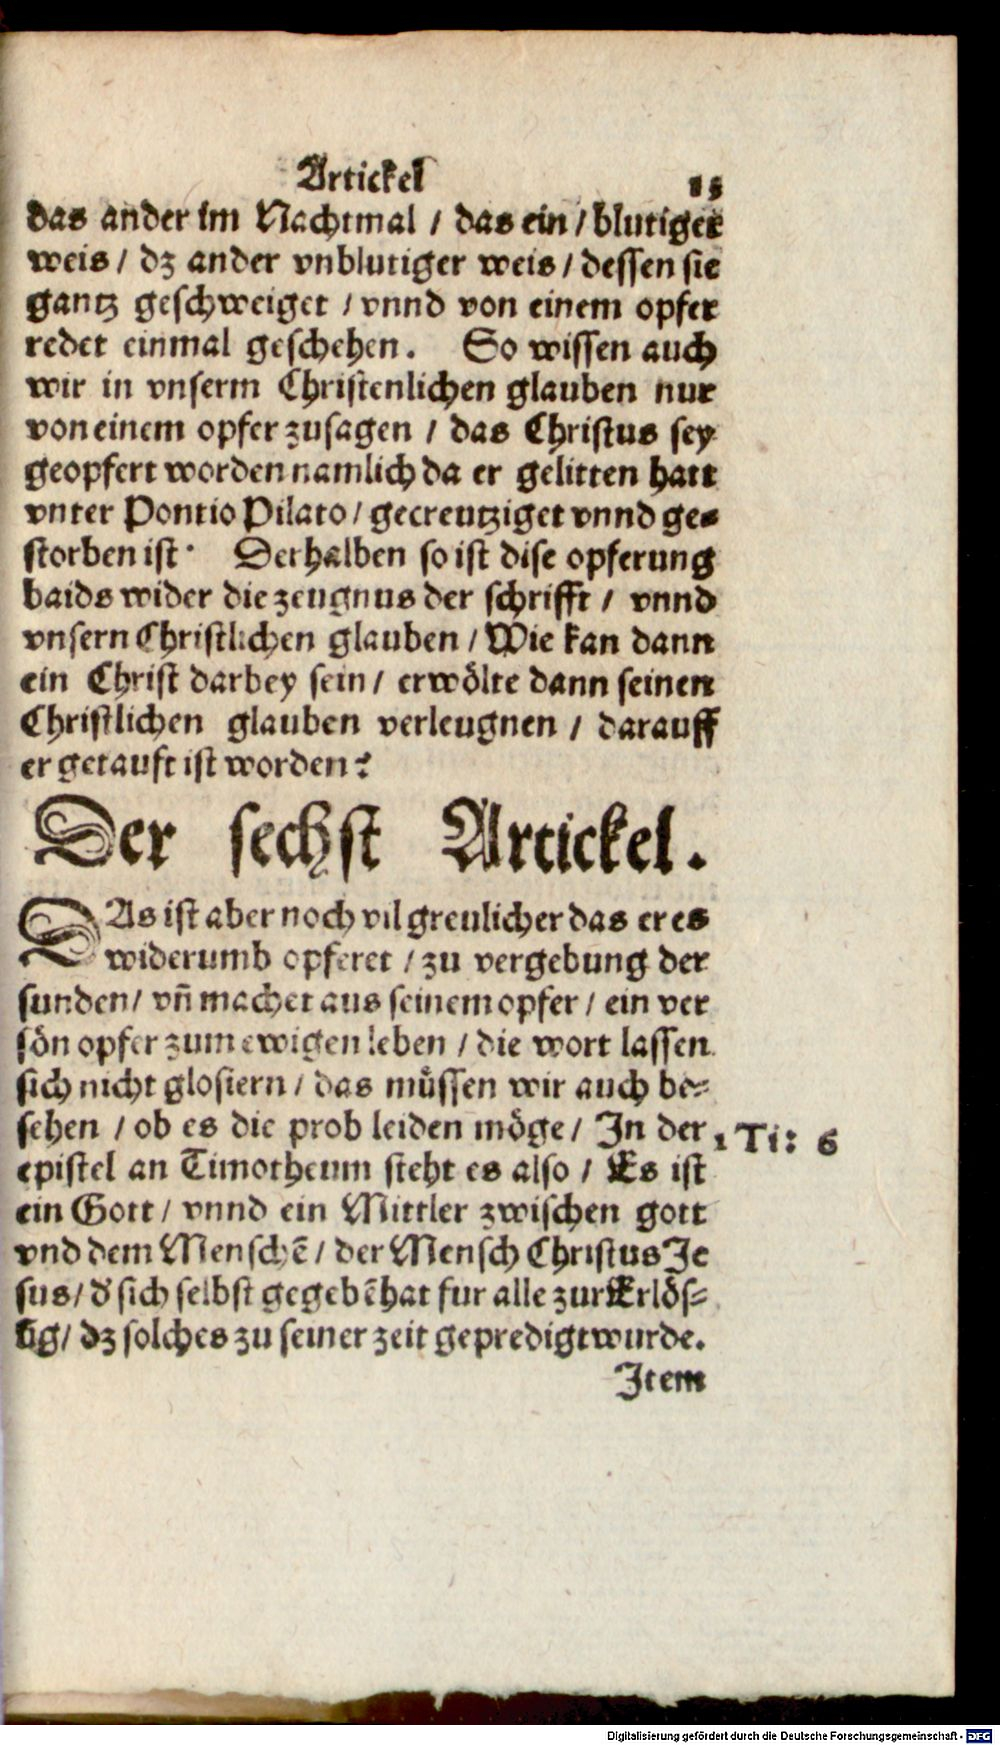 Artickel 15
das ander im Nachtmal / das ein / blutiger
weis / dz ander vnblutiger weis / dessen sie
gantz geschweiget / vnnd von einem opfer
redet einmal geschehen. So wissen auch
wir in vnserm Christenlichen glauben nur
von einem opfer zusagen / das Christus sey
geopfert worden namlich da er gelitten hatt
vnter Pontio Pilato / gecreutziget vnnd ge-
storben ist. Derhalben so ist dise opferung
baids wider die zeugnus der schrifft / vnnd
vnsern Christlichen glauben / Wie kan dann
ein Christ darbey sein / er wölte dann seinen
Christlichen glauben verleugnen / darauff
er getauft ist worden?
Der sechst Artickel.
DAs ist aber noch vil greulicher das er es
widerumb opferet / zu vergebung der
sunden / vn̄ machet aus seinem opfer / ein ver
sön opfer zum ewigen leben / die wort lassen
sich nicht glosiern / das müssen wir auch be-
sehen / ob es die prob leiden möge / In der
1 Ti: 6
epistel an Timotheum steht es also / Es ist
ein Gott / vnnd ein Mittler zwischen gott
vnd dem Menschē / der Mensch Christus Je
sus / d' sich selbst gegebē hat fur alle zur Erlös-
ūg / dz solches zu seiner zeit gepredigt wurde.
Item
Digitalisierung gefördert durch die Deutsche Forschungsgemeinschaft - DFG